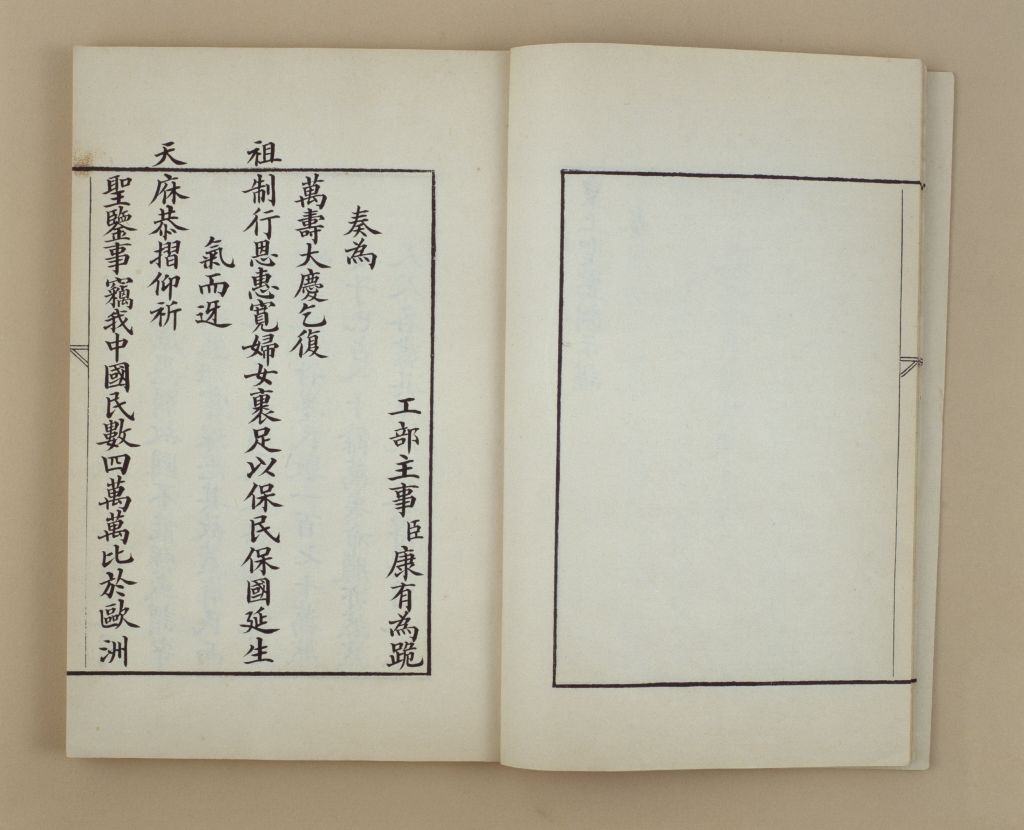 工部主事臣康有為跪
奏為
萬壽大慶乞復
祖制行恩惠寬婦女裹足以保民保國延生
氣而迓
天庥恭摺仰祈
聖鑒事竊我中國民數四萬萬比於歐洲